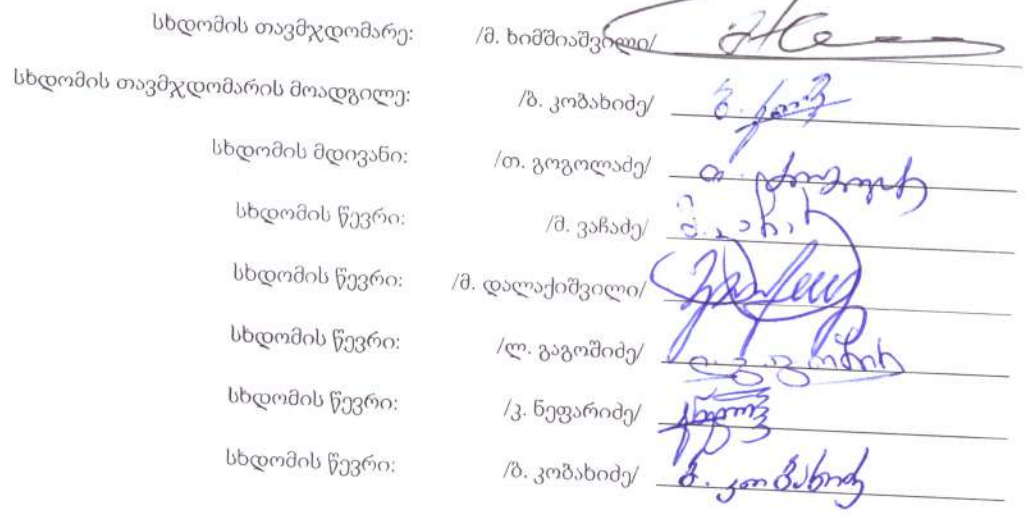 სხდომის თავმჯდომარე: /მ. ხიმშიაშვილი/
სხდომის თავმჯდომარის მოადგილე: /ბ. კობახიძე/
სხდომის მდივანი: /თ. გოგოლაძე/
სხდომის წევრი: /მ. ვაჩაძე/
სხდომის წევრი: /მ. დალაქიშვილი/
სხდომის წევრი: /ლ. გაგოშიძე/
სხდომის წევრი: /კ. ნეფარიძე/
სხდომის წევრი: /ბ. კობახიძე/ ბ. კობახიძე